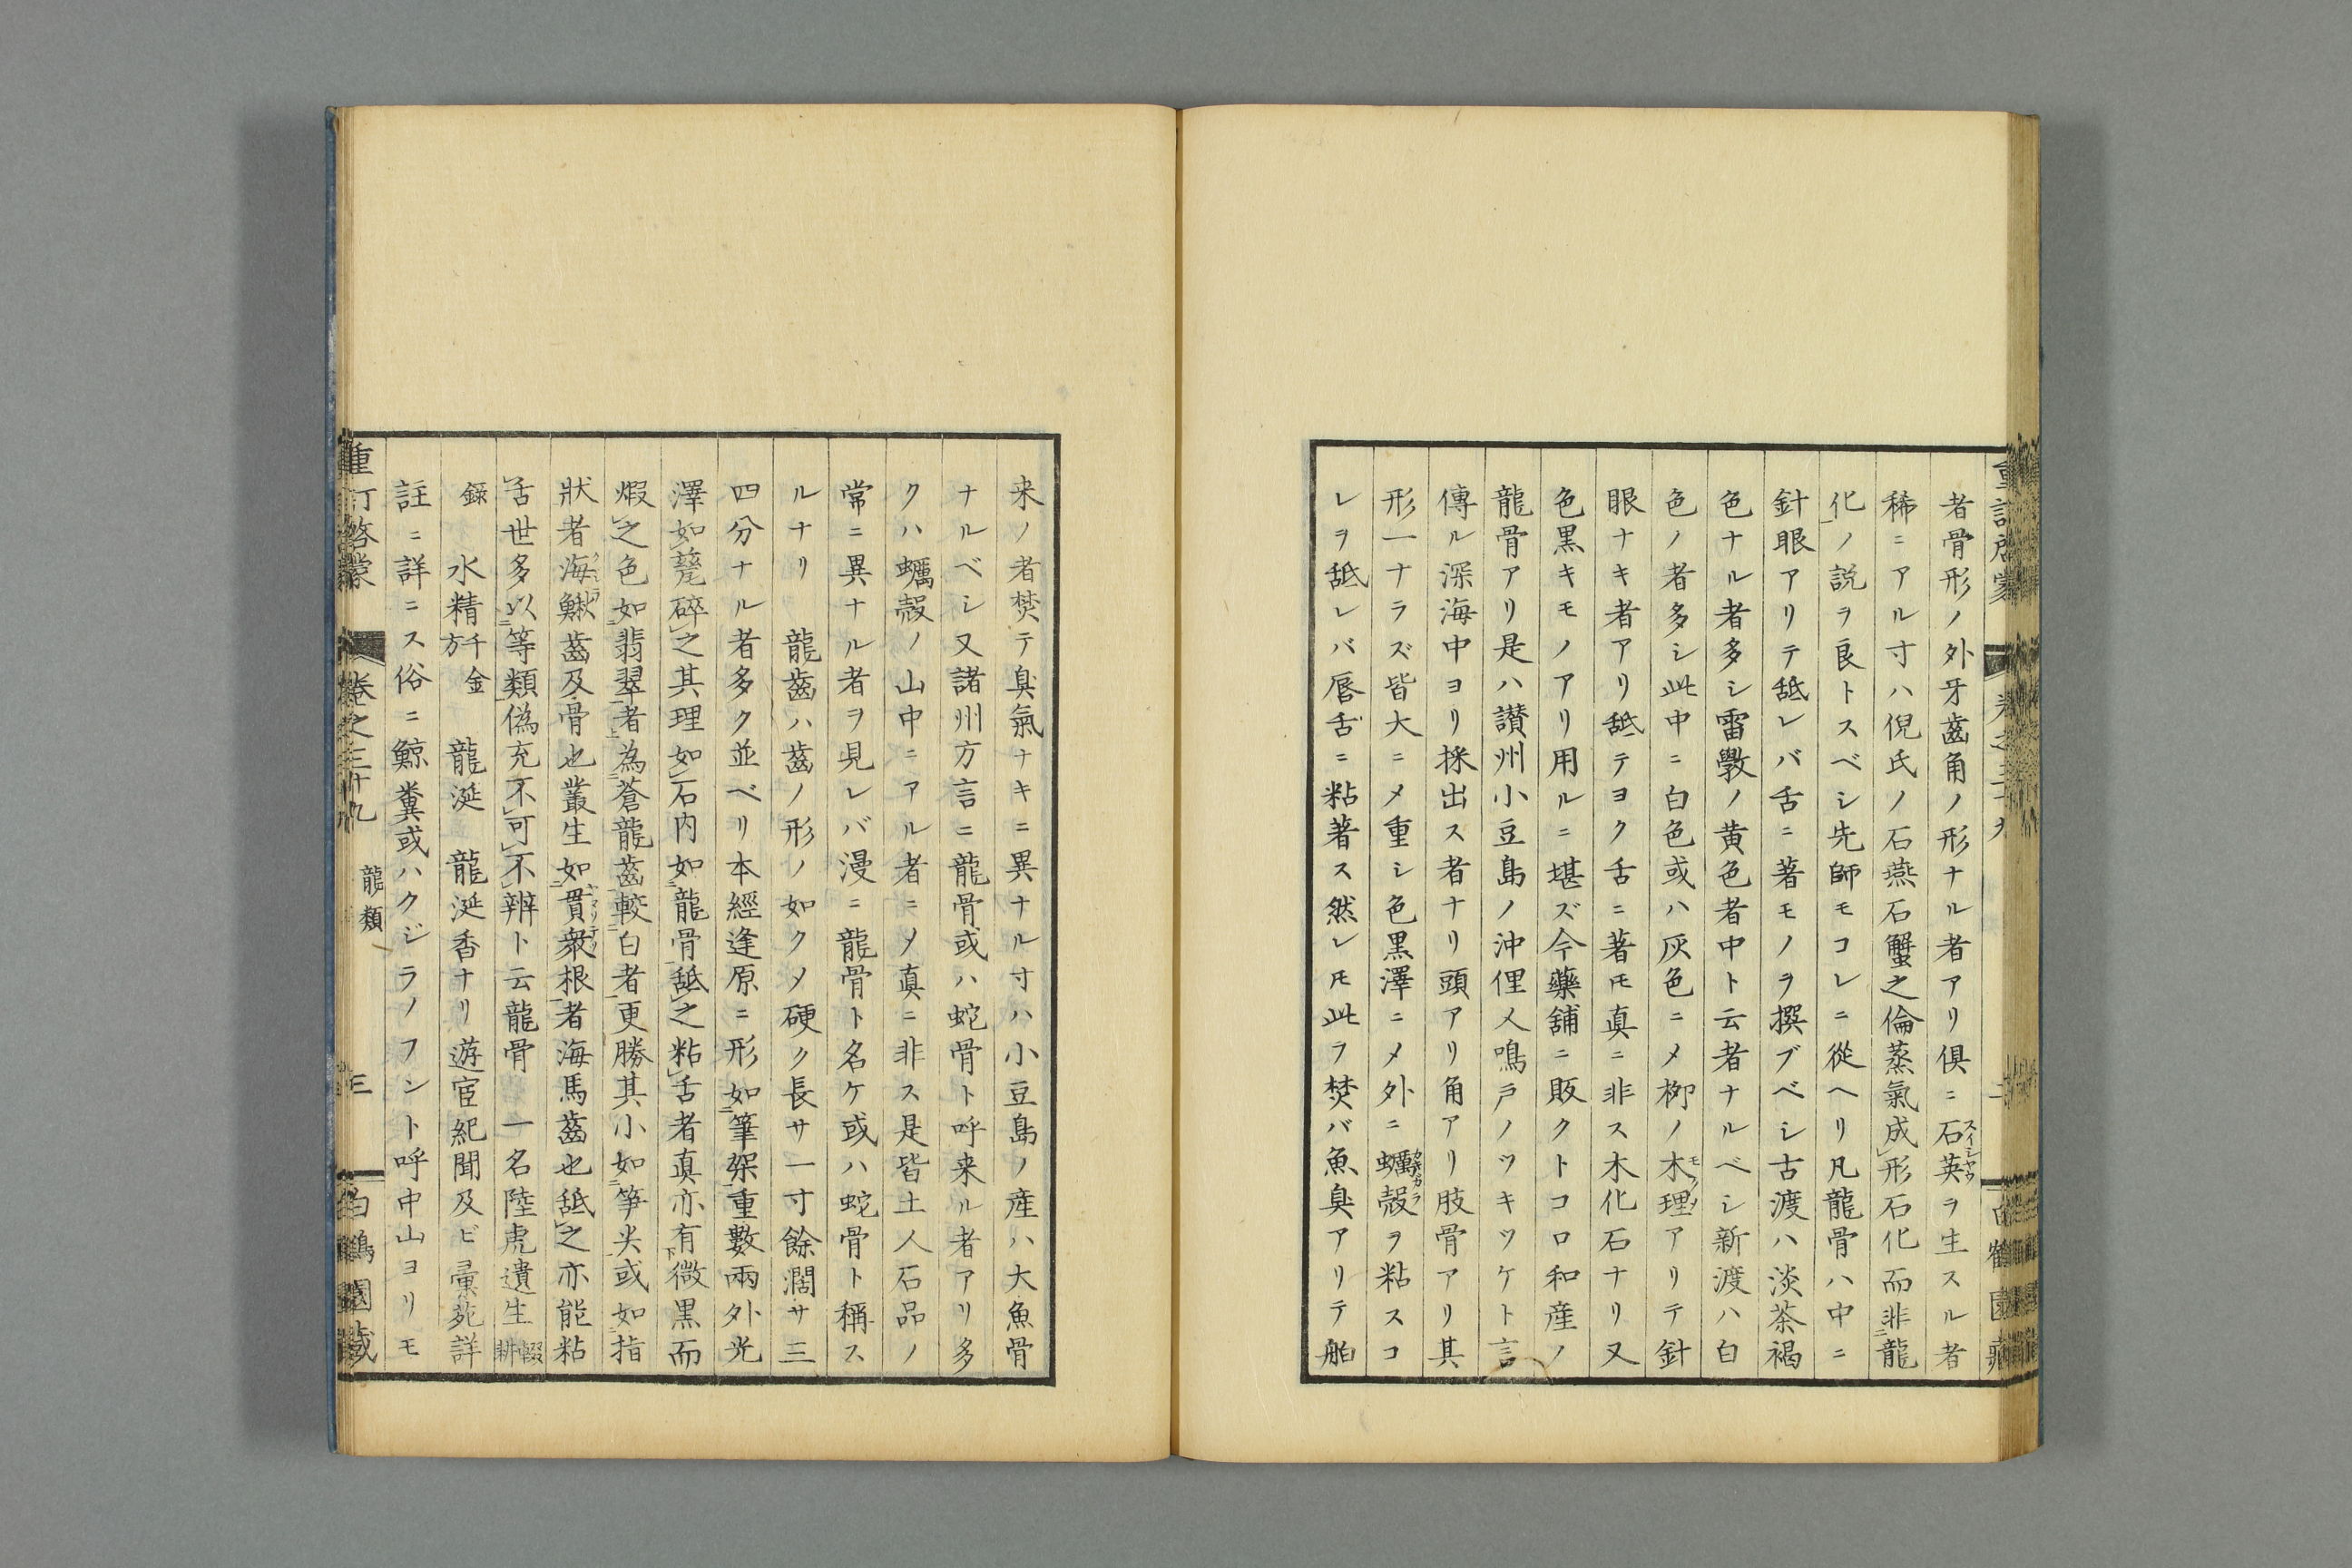 者骨形ノ外牙齒角ノ形ナル者アリ俱ニ石英ヲ生スル者
スイシヤウ
稀ニアル寸ハ倪氏ノ石燕石蟹之倫蒸氣成形石化而非龍
化ノ説ヲ良トスベシ先師モコレニ從ヘリ凡龍骨ハ中ニ
針眼アリテ舐レバ舌ニ著モノヲ撰ブベシ古渡ハ淡茶褐
色ナル者多シ雷斅ノ黄色者中ト云者ナルベシ新渡ハ白
色ノ者多シ此中ニ白色或ハ灰色ニメ栁ノ木理アリテ針
モクメ
眼ナキ者アリ舐テヨク舌ニ著𪜈真ニ非ス木化石ナリ又
色黒キモノアリ用ルニ堪ズ今藥舖ニ販クトコロ和産ノ
龍骨アリ是ハ讃州小豆島ノ沖俚人鳴戸ノツキツケト言
傳ル深海中ヨリ採出ス者ナリ頭アリ角アリ肢骨アリ其
形一ナラズ皆大ニメ重シ色黒澤ニメ外ニ蠣殻ヲ粘スコ
カキガラ
レヲ舐レバ唇舌ニ粘著ス然レ𪜈此ヲ焚バ魚臭アリテ舶
来ノ者焚テ臭氣ナキニ異ナル寸ハ小豆島ノ産ハ大魚骨
ナルベシ又諸州方言ニ龍骨或ハ蛇骨ト呼来ル者アリ多
クハ蠣殻ノ山中ニアル者ニメ真ニ非ス是皆土人石品ノ
常ニ異ナル者ヲ見レバ漫ニ龍骨ト名ケ或ハ蛇骨ト稱ス
ルナリ 龍齒ハ齒ノ形ノ如クメ硬ク長サ一寸餘濶サ三
四分ナル者多ク並ベリ本經逢原ニ形如筆架重數兩外光
澤如甆碎之其理如石内如龍骨舐之粘舌者真亦有微黒而
煆之色如翡翠者為蒼龍齒較白者更勝其小如笋尖或如指
狀者海鰍齒及骨也叢生如貫衆根者海馬齒也舐之亦能粘
クジラ
舌世多以等類偽充不可不辨ト云龍骨 一名陸虎遺生 輟耕
錄 水精 千金方 龍涎 龍涎香ナリ遊宦紀聞及ビ彙苑詳
註ニ詳ニス俗ニ鯨糞或ハクジラノフント呼中山ヨリモ
重訂啓蒙 卷之三十九 龍類 三 白鶴園藏